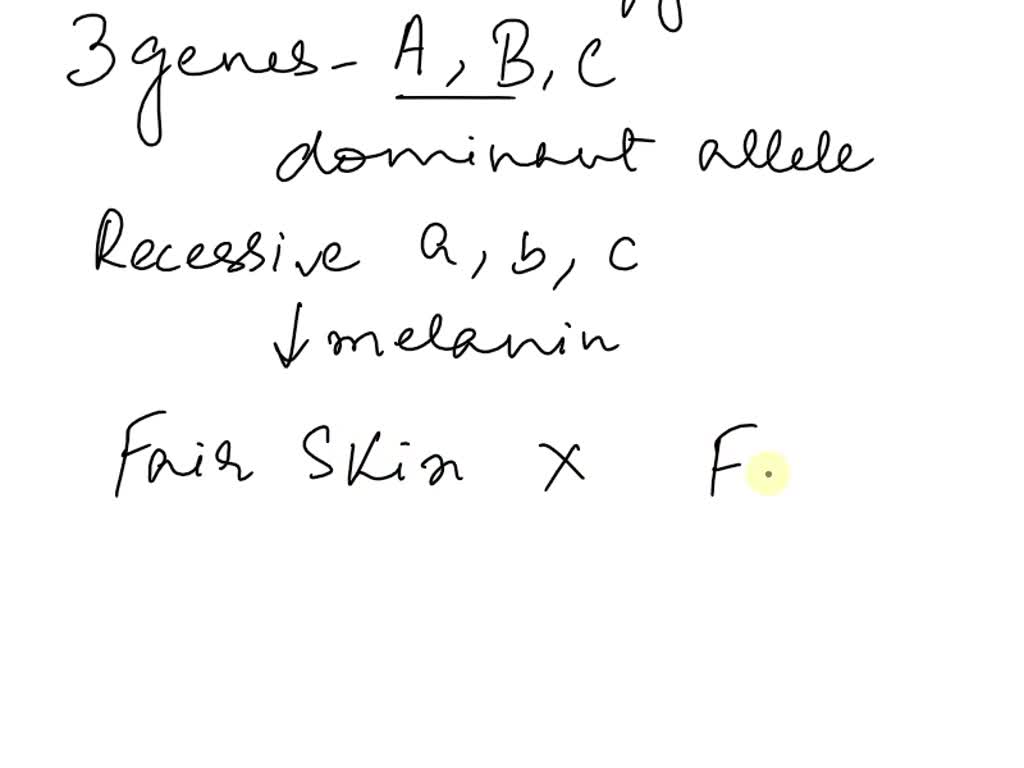 3 genes - A, B, C
dominant allele
Recessive a, b, c
↓ melanin
Fair Skin X F